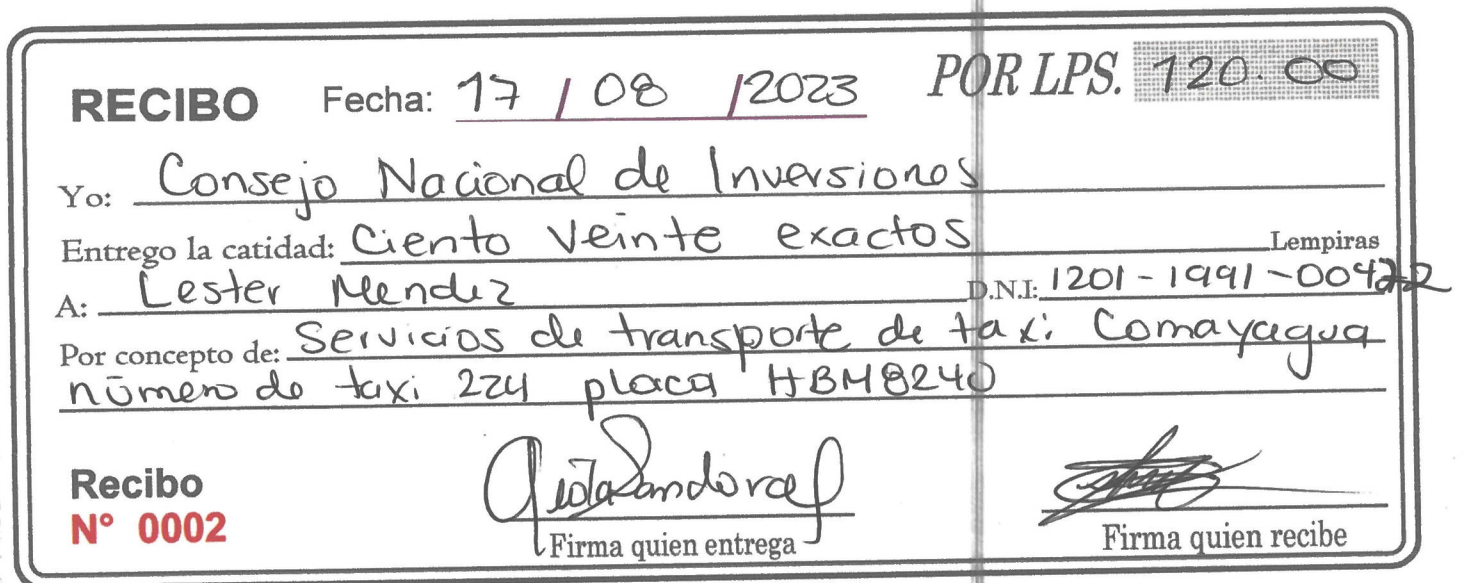 RECIBO Fecha: 17 / 08 / 2023 POR LPS. 120.00
Yo: Consejo Nacional de Inversiones
Entrego la catidad: Ciento Veinte exactos Lempiras
A: Lester Mendez D.N.I: 1201-1991-00422
Por concepto de: Servicios de transporte de taxi Comayagua
número de taxi 224 placa HBM8240
Recibo
N° 0002
Sandoval
Firma quien entrega Firma quien recibe